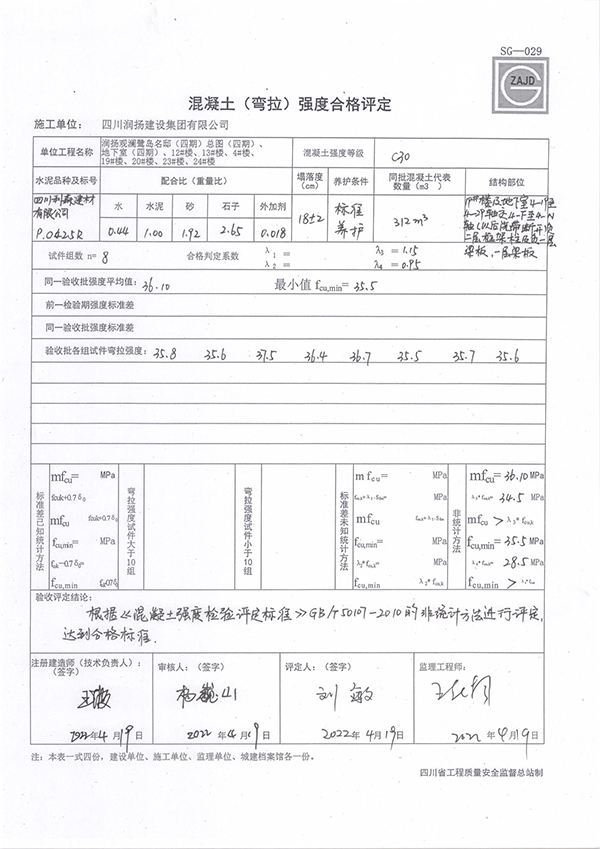 SG—029
ZAJD
混凝土（弯拉）强度合格评定
施工单位： 四川润扬建设集团有限公司
单位工程名称 润扬观澜鹭岛名邸（四期）总图（四期）、地下室（四期）、12#楼、13#楼、4#楼、19#楼、20#楼、23#楼、24#楼 混凝土强度等级 C30
水泥品种及标号 配合比（重量比） 塌落度（cm） 养护条件 同批混凝土代表数量（m3 ） 结构部位
四川利森建材有限公司 P.O42.5R 水 水泥 砂 石子 外加剂 18±2 标准养护 312m³
0.44 1.00 1.92 2.65 0.018
二层板梁柱及负一层梁板，一层梁板
试件组数 n= 8 合格判定系数 λ1 = λ3 = 1.15
λ2 = λ4 = 0.95
同一验收批强度平均值： 36.10 最小值 fcu,min= 35.5
前一检验期强度标准差
同一验收批强度标准差
验收批各组试件弯拉强度： 35.8 35.6 37.5 36.4 36.7 35.5 35.7 35.6
标准差已知统计方法 mfcu= MPa 弯拉强度试件大于10组 弯拉强度试件小于10组 标准差未知统计方法 mfcu= MPa 非统计方法 mfcu= 36.10 MPa
fcuk+0.7δ0 MPa 34.5 MPa
mfcu fcuk+0.7δ0 mfcu mfcu > λ3*fcu,k
fcu,min= MPa fcu,min= MPa fcu,min= 35.5 MPa
fcu,k-0.7δ0= λ2*fcu,k= MPa 28.5 MPa
fcu,min fcu,min λ2*fcu,k fcu,min >
验收评定结论：
根据《混凝土强度检验评定标准》GB/T50107-2010的非统计方法进行评定，
达到合格标准.
注册建造师（技术负责人）：（签字） 审核人：（签字） 评定人：（签字） 监理工程师：
刘敏
2022年4月19日 2022年4月19日 2022年4月19日 2022年4月19日
注：本表一式四份，建设单位、施工单位、监理单位、城建档案馆各一份。
四川省工程质量安全监督总站制